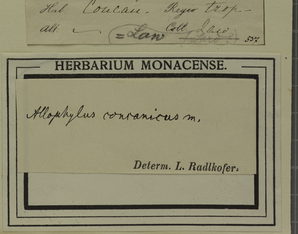 Hab Concan. Regio trop.
alt = Law Coll. Law
537
HERBARIUM MONACENSE.
Allophylus concanicus m.
Determ. L. Radlkofer.